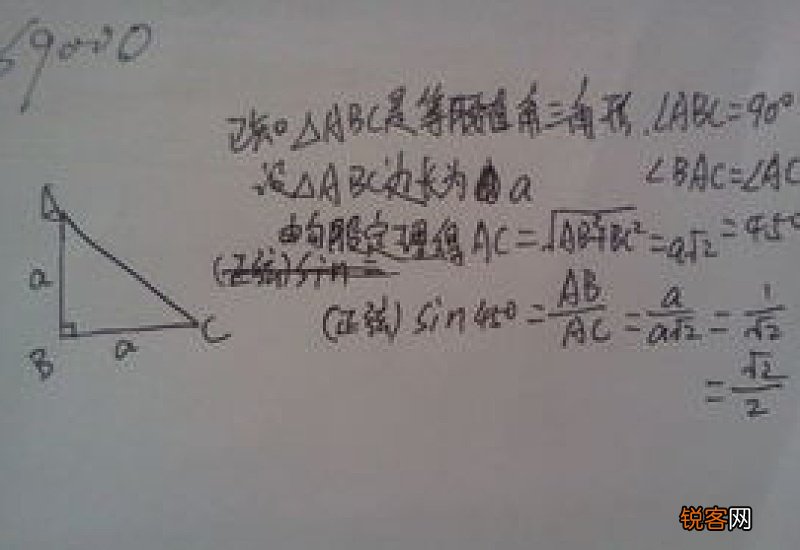 已知。△ABC是等腰直角三角形,∠ABC=90°
设△ABC边长为a ∠BAC=∠AC
由勾股定理得AC=√AB²+BC²=a√2 =45°
(正弦)sin
(正弦)sin45°=AB/AC=a/a√2=1/√2
=√2/2
A
a
B
a
C
锐客网